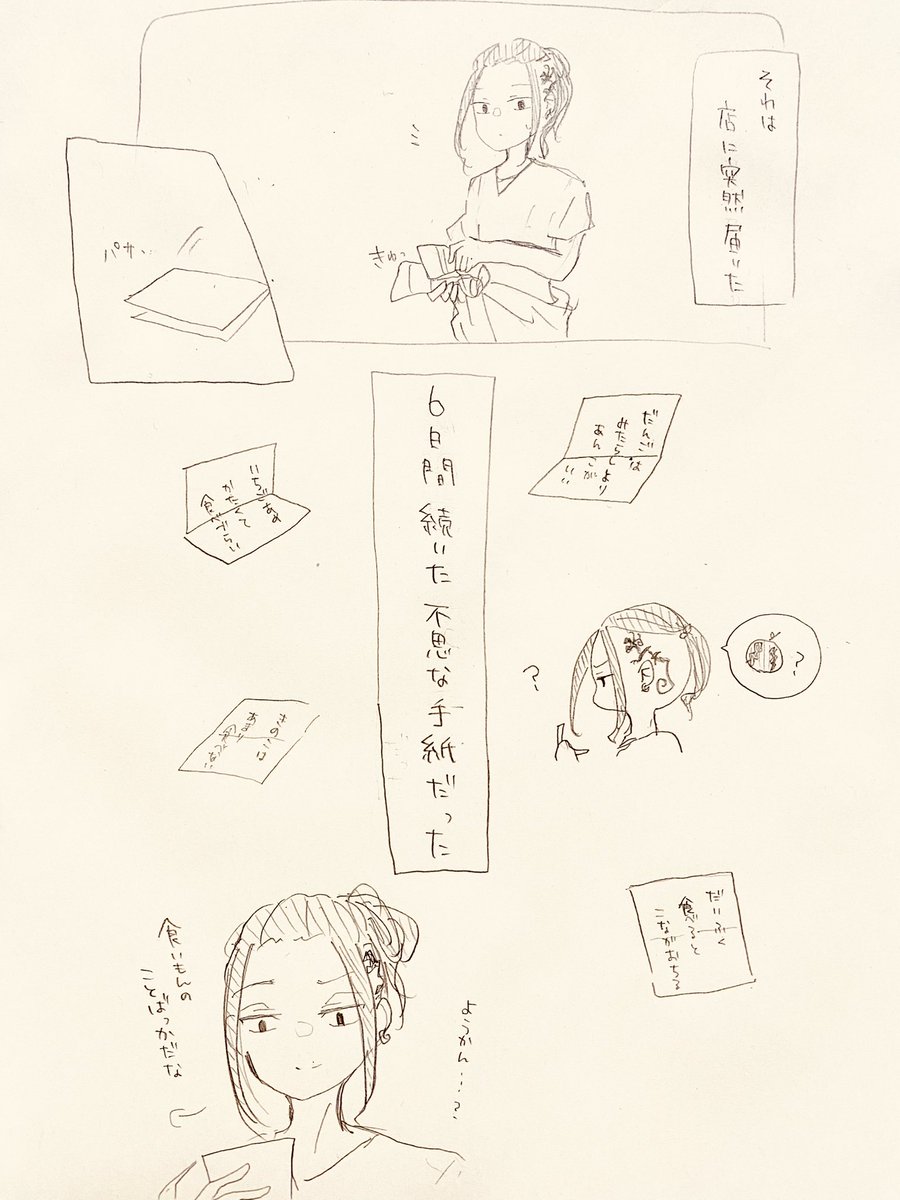 それは
店に突然届いた
きゅっ
パサ、、
6日間続いた不思議な手紙だった
だんごは
みたらしより
あんこがいい
いちごあめ
かたくて
食べずらい
?
?
きのこは
あまり
だいふく
食べると
こながおちる
ようかん…?
食いもんの
ことばっかだな